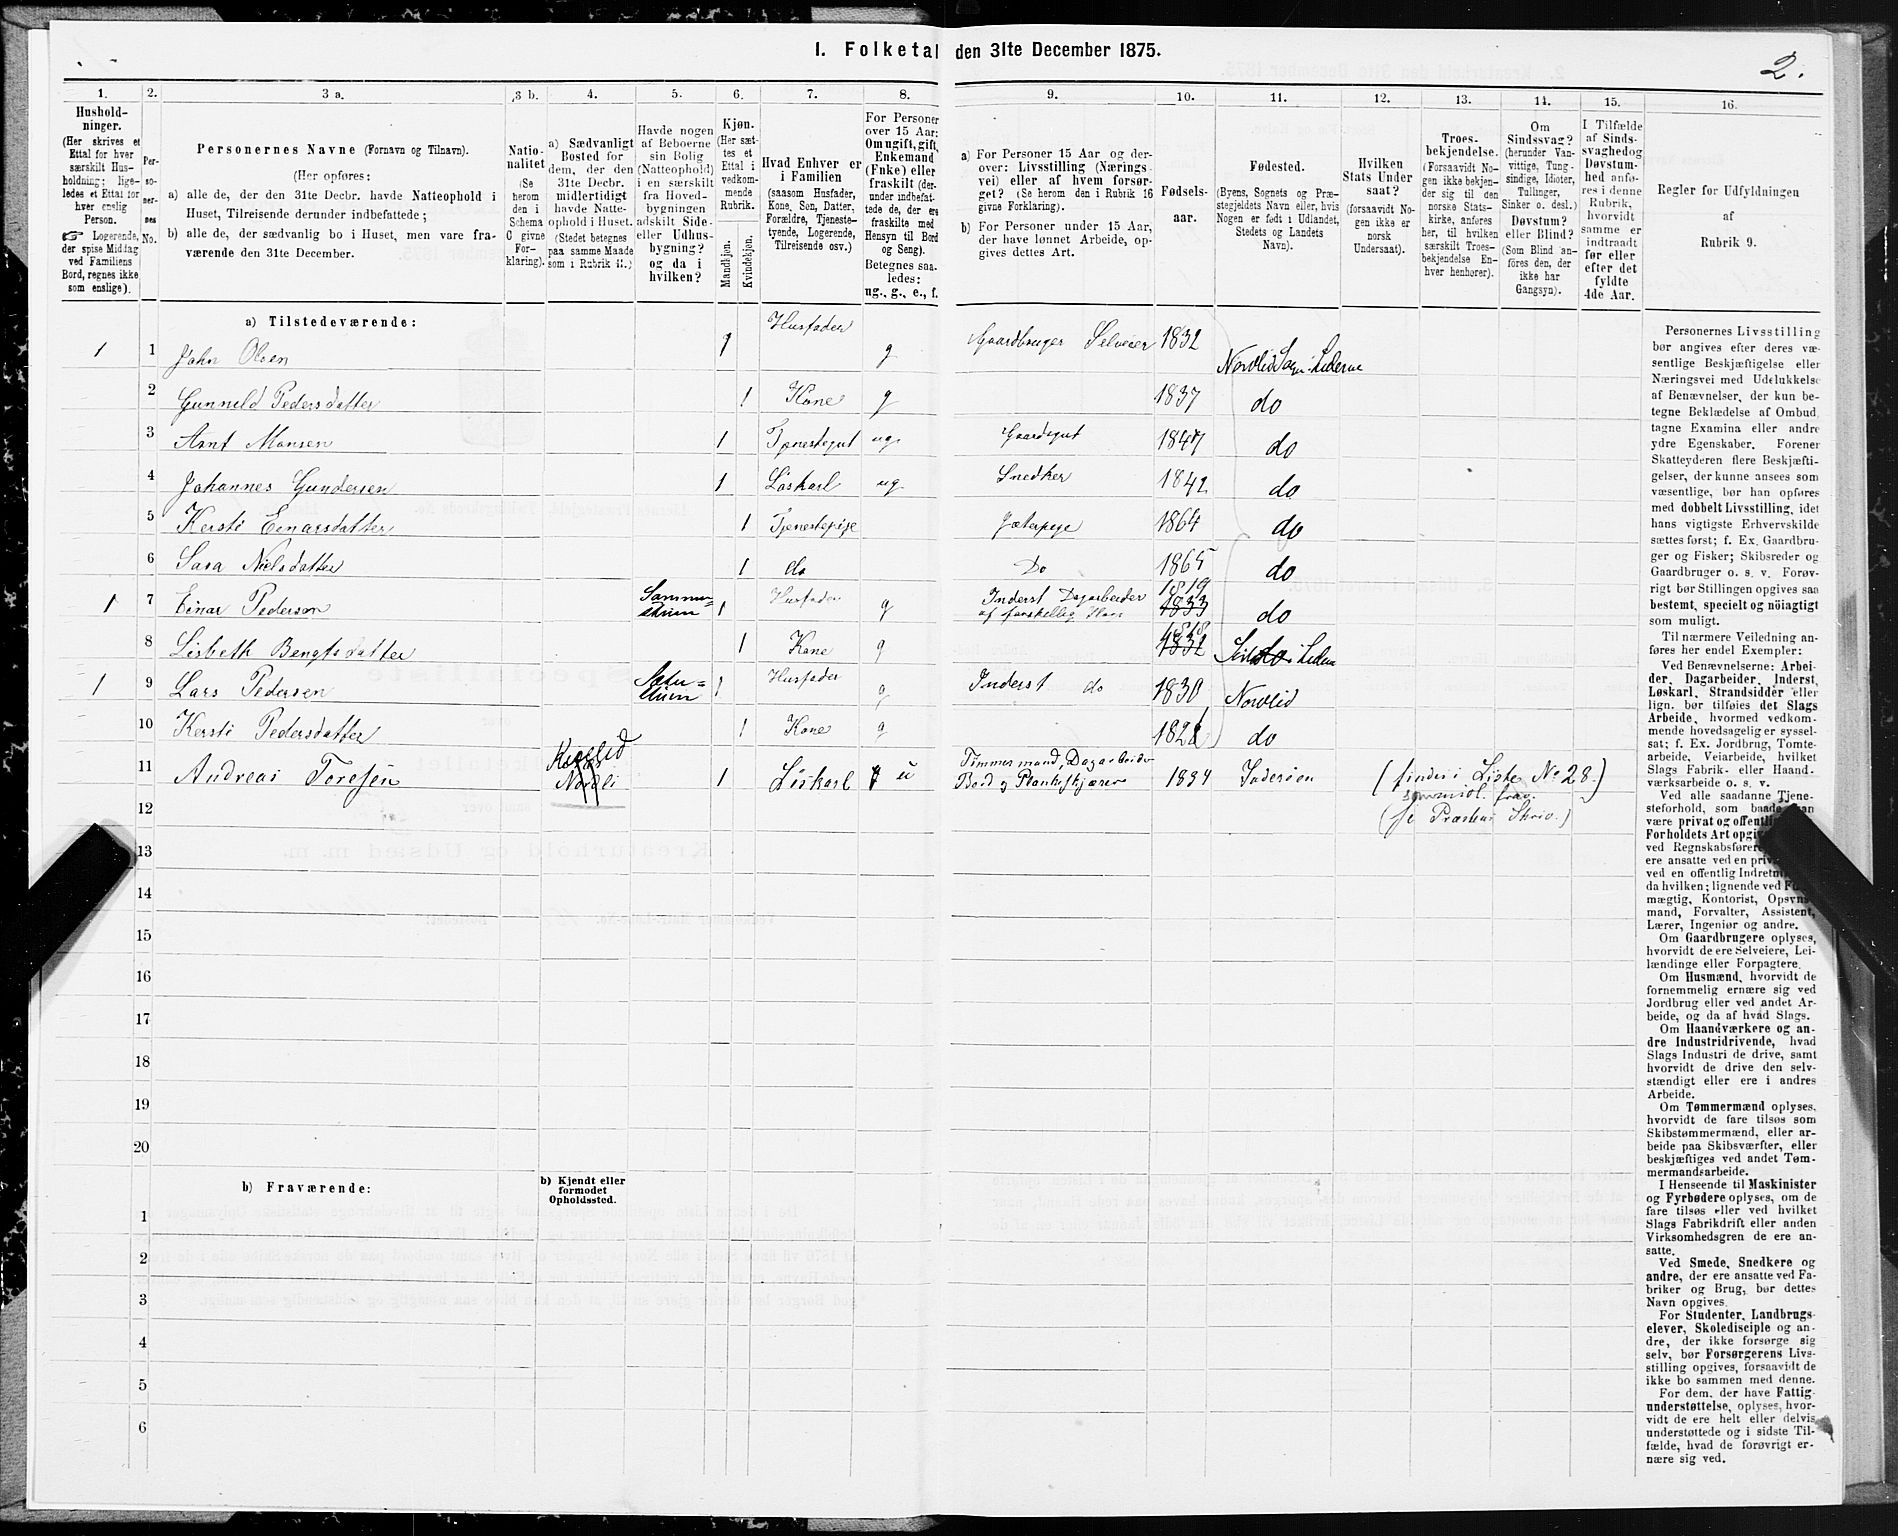 I. Folketal den 31te December 1875.
2.
1.
Hushold-
ninger.
(Her skrives et
Ettal for hver
særskilt Hus-
holdning; lige-
ledes et Ettal for
hver enslig
Person.
Logerende,
der spise Middag
ved Familiens
Bord, regnes ikke
som enslige).
2.
Per-
so-
ner-
nes
No.
3 a.
Personernes Navne (Fornavn og Tilnavn).
(Her opføres:
a) alle de, der den 31te Decbr. havde Natteophold i
Huset, Tilreisende derunder indbefattede;
b) alle de, der sædvanlig bo i Huset, men vare fra-
værende den 31te December.
3 b.
Natio-
nalitet
(Se
herom
den i
Schema
C givne
For-
klaring).
4.
a) Sædvanligt
Bosted for
dem, der den
31te Decbr.
midlertidigt
havde Natte-
ophold i Huset.
(Stedet betegnes
paa samme Maade
som i Rubrik 11.)
5.
Havde nogen
af Beboerne
sin Bolig
(Natteophold)
i en særskilt
fra Hoved-
bygningen
adskilt Side-
eller Udhus-
bygning?
og da i
hvilken?
6.
Kjøn.
(Her sæt-
tes et
Ettal i
vedkom-
mende
Rubrik.
Mandkjøn.
Kvindekjøn.
7.
Hvad Enhver er
i Familien
(saasom Husfader,
Kone, Søn, Datter,
Forældre, Tjeneste-
tyende, Logerende,
Tilreisende osv.)
8.
For Personer
over 15 Aar:
Om ugift, gift,
Enkemand
(Enke) eller
fraskilt (der-
under indbefat-
tede de, der ere
fraskilte med
Hensyn til Bord
og Seng).
Betegnes saa-
ledes:
ug., g., e., f.
9.
a) For Personer 15 Aar og der-
over: Livsstilling (Nærings-
vei) eller af hvem forsør-
get? (Se herom den i Rubrik 16
givne Forklaring).
b) For Personer under 15 Aar,
der have lønnet Arbeide, op-
gives dettes Art.
10.
Fødsels-
aar.
11.
Fødested.
(Byens, Sognets og Præ-
stegjeldets Navn eller, hvis
Nogen er født i Udlandet,
Stedets og Landets
Navn).
12.
Hvilken
Stats Under
saat?
(forsaavidt No-
gen ikke er
norsk
Undersaat).
13.
Troes-
bekjendelse.
(Forsaavidt No-
gen ikke bekjen-
der sig til den
norske Stats-
kirke, anføres
her, til hvilken
særskilt Troes-
bekjendelse En-
hver henhører).
14.
Om
Sindssvag?
(herunder Van-
vittige, Tung-
sindige, Idioter,
Tullinger,
Sinker o. desl.)
Døvstum?
eller Blind?
(Som Blind an-
føres den, der
ikke har
Gangsyn).
15.
I Tilfælde
af Sinds-
svaghed og
Døvstum-
hed anfø-
res i denne
Rubrik,
hvorvidt
samme er
indtraadt
før eller
efter det
fyldte
4de Aar.
16.
Regler for Udfyldningen
af
Rubrik 9.
a) Tilstedeværende:
1 1 John Olsen 1 Husfader g Gaardbruger Selveier 1832 Nordlid Sogn i Lederne
2 Gunnild Pedersdatter 1 Kone g 1837 do
3 Arnt Monsen 1 Tjenestegut ug Gaardsgut 1847 do
4 Johannes Gundersen 1 Løskarl ug Snedker 1842 do
5 Kersti Einarsdatter 1 Tjenestepige Jæterpige 1864 do
6 Sara Nielsdatter 1 do Do 1865 do
1 7 Einar Pederson 1 Husfader g Inderst Dagarbeider
af forskellig Slags 1819 1833 do
8 Lisbeth Bengtsdatter 1 Kone g 1832
1 9 Lars Pedersen 1 Husfader g Inderst do 1830 Nordlid
10 Kersti Pedersdatter 1 Kone g do
11 Andreas Toresen Nordli 1 Løskarl u Timmermand, Dagarbeider
Bord og Plankeskjærer 1834 Inderøen (findes i Liste No 28.)
12
13
14
15
16
17
18
19
20
b) Fraværende:
b) Kjendt eller
formodet
Opholdssted.
1
2
3
4
5
6
Personernes Livsstilling
bør angives efter deres væ-
sentlige Beskjæftigelse eller
Næringsvei med Udelukkelse
af Benævnelser, der kun be-
tegne Beklædelse af Ombud,
tagne Examina eller andre
ydre Egenskaber. Forener
Skatteyderen flere Beskjæfti-
gelser, der kunne ansees som
væsentlige, bør han opføres
med dobbelt Livsstilling, idet
hans vigtigste Erhvervskilde
sættes først; f. Ex. Gaardbru-
ger og Fisker; Skibsreder og
Gaardbruger o. s. v. Forøv-
rigt bør Stillingen opgives saa
bestemt, specielt og nöiagtigt
som muligt.
Til nærmere Veiledning an-
føres her endel Exempler:
Ved Benævnelserne: Arbei-
der, Dagarbeider, Inderst,
Løskarl, Strandsidder eller
lign. bør tilføies det Slags
Arbeide, hvormed vedkom-
mende hovedsagelig er syssel-
sat; f. Ex. Jordbrug, Tomte-
arbeide, Veiarbeide, hvilket
Slags Fabrik- eller Haand-
værksarbeide o. s. v.
Ved alle saadanne Tjene-
steforhold, som baade kan
være privat og offentlig
Forholdets Art opgives
ved Regnskabsførere
ere ansatte ved en
ved en offentlig
da hvilken; lignende ved
mægtig, Kontorist, Opsyns-
mand, Forvalter, Assistent,
Lærer, Ingeniør og andre.
Om Gaardbrugere oplyses,
hvorvidt de ere Selveiere, Lei-
lændinge eller Forpagtere.
Om Husmænd, hvorvidt de
fornemmelig ernære sig ved
Jordbrug eller ved andet Ar-
beide, og da af hvad Slags.
Om Haandværkere og an-
dre Industridrivende, hvad
Slags Industri de drive, samt
hvorvidt de drive den selv-
stændigt eller ere i andres
Arbeide.
Om Tømmermænd oplyses,
hvorvidt de fare tilsøs som
Skibstømmermænd, eller ar-
beide paa Skibsværfter, eller
beskjæftiges ved andet Tøm-
mermandsarbeide.
I Henseende til Maskinister
og Fyrbødere oplyses, om de
fare tilsøs eller ved hvilket
Slags Fabrikdrift eller anden
Virksomhedsgren de ere an-
satte.
Ved Smede, Snedkere og
andre, der ere ansatte ved Fa-
briker og Brug, bør dettes
Navn opgives.
For Studenter, Landbrugs-
elever, Skoledisciple og an-
dre, der ikke forsørge sig
selv, bør Forsørgerens Livs-
stilling opgives, forsaavidt de
ikke bo sammen med denne.
For dem, der have Fattig-
understøttelse, oplyses, hvor-
vidt de ere helt eller delvis
understøttede og i sidste Til-
fælde, hvad de forøvrigt er-
nære sig ved.